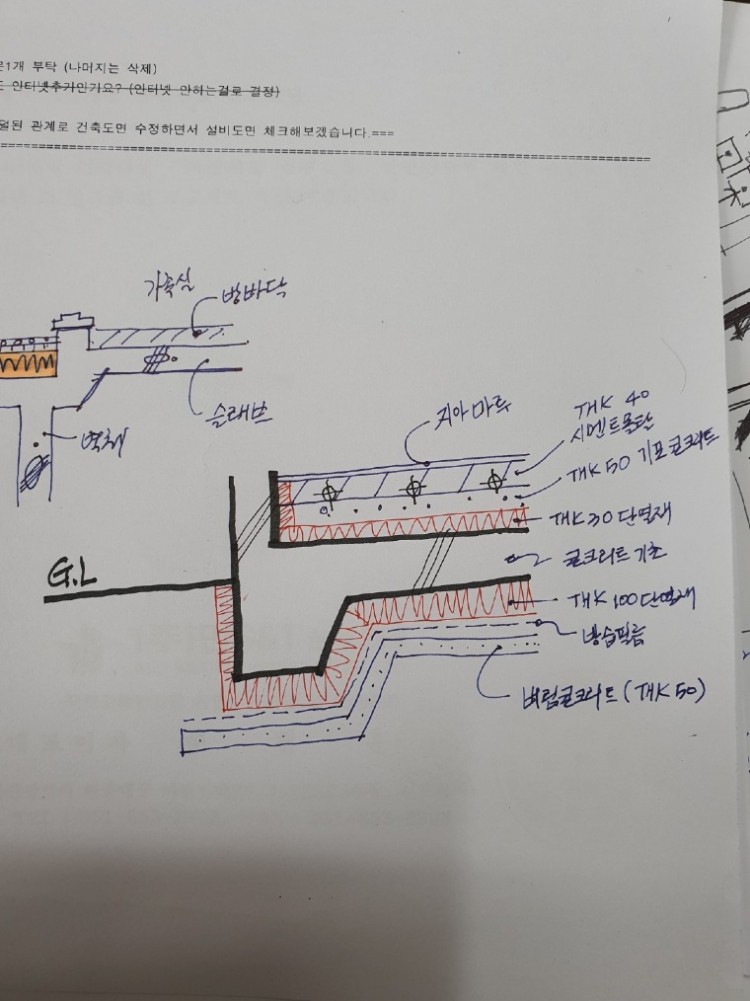 1개 부탁 (나머지는 삭제)
인터넷추가인가요? (인터넷 안하는걸로 결정)
관계로 건축도면 수정하면서 설비도면 체크해보겠습니다.===
가족실
방바닥
슬래브
벽체
지아마루
THK 40
시멘트몰탈
THK 50 기포콘크리트
THK 30 단열재
콘크리트 기초
G.L
THK 100 단열재
방습필름
버림콘크리트 (THK 50)